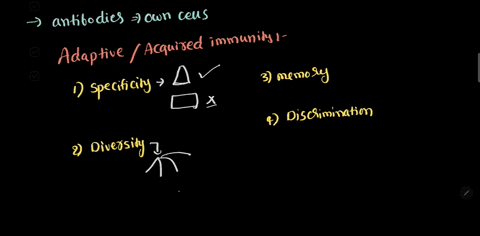 → antibodies ⇒ own cells
Adaptive / Acquired immunity :-
1) Specificity → ✓
x
2) Diversity
3) memory
4) Discrimination